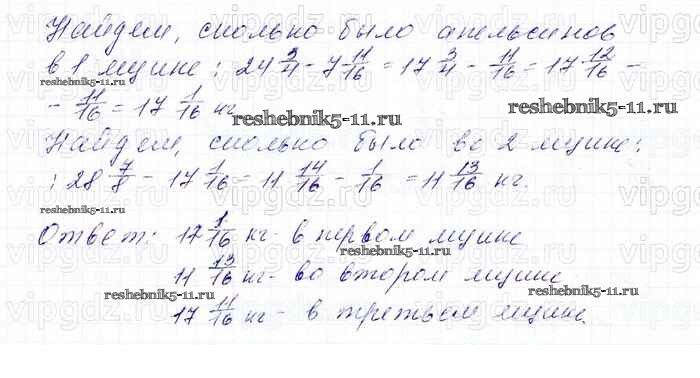 Найдем, сколько было апельсинов
в 1 ящике: 24 3/4 - 7 11/16 = 17 3/4 - 11/16 = 17 12/16 -
reshebnik5-11.ru
- 11/16 = 17 1/16 кг
reshebnik5-11.ru
reshebnik5-11.ru
Найдем, сколько было во 2 ящике:
: 28 7/8 - 17 1/16 = 11 14/16 - 1/16 = 11 13/16 кг.
reshebnik5-11.ru
Ответ: 17 1/16 кг - в первом ящике
reshebnik5-11.ru
11 13/16 кг - во втором ящике
reshebnik5-11.ru
reshebnik5-11.ru
17 11/16 кг - в третьем ящике.